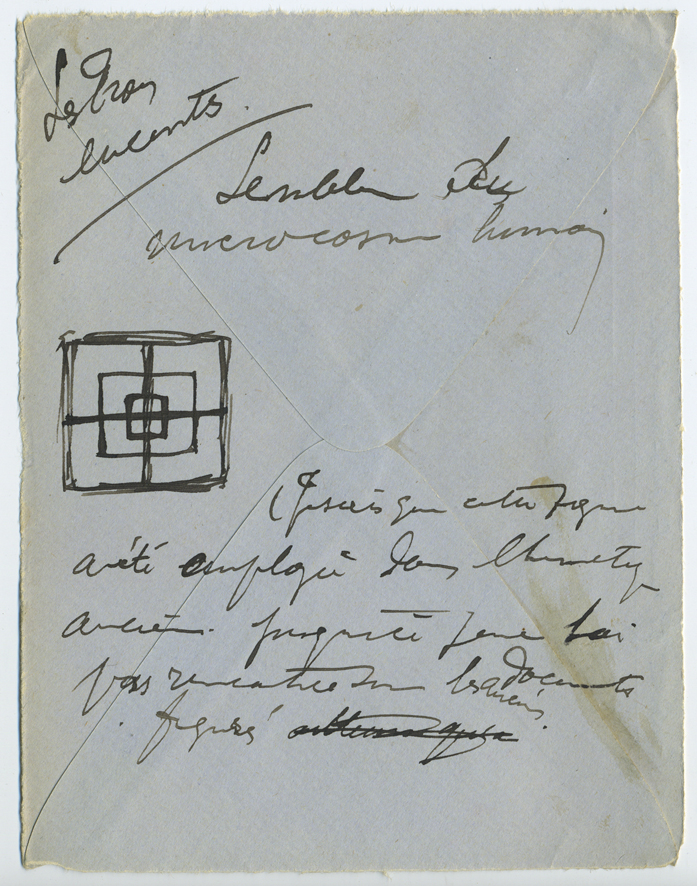 Les Trois
enceints.
Semblan du
microcosme humain
(Je sais que cette figure
a été employé dans l'hermety
ancien. Jusqu'ici je ne l'ai
pas rencontrée sur les anciens documents
figurés